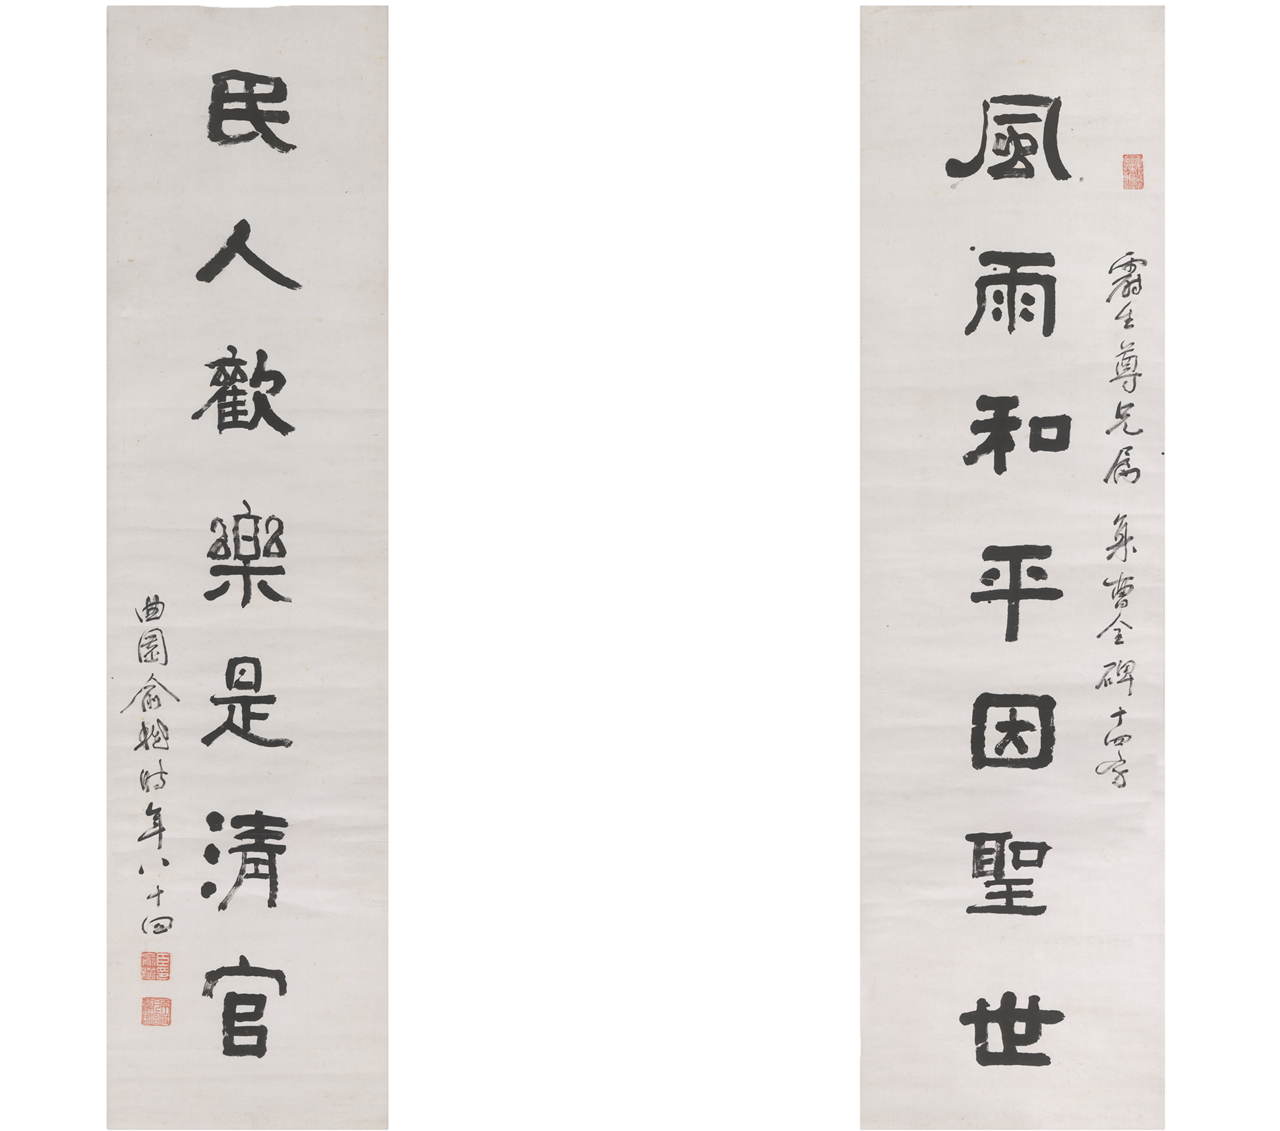 霨生尊兄屬 集曹全碑十四字
風雨和平因聖世
民人歡樂是清官
曲園俞樾時年八十四